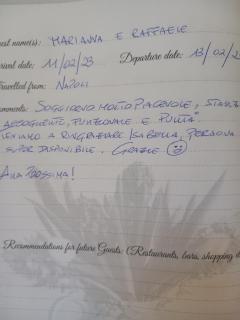 est name(s): MARIANNA E RAFFAELE
rrival date: 11/02/23 Departure date: 13/02/2
Travelled from: NAPOLI
omments: SOGGIORNO MOLTO PIACEVOLE, STANZA
ACCOGLIENTE, FUNZIONALE E PULITA.
TENIAMO A RINGRAZIARE ISABELLA, PERSONA
SUPER DISPONIBILE. GRAZIE
ALLA PROSSIMA!
Recommendations for future Guests: (Restaurants, bars, shopping d